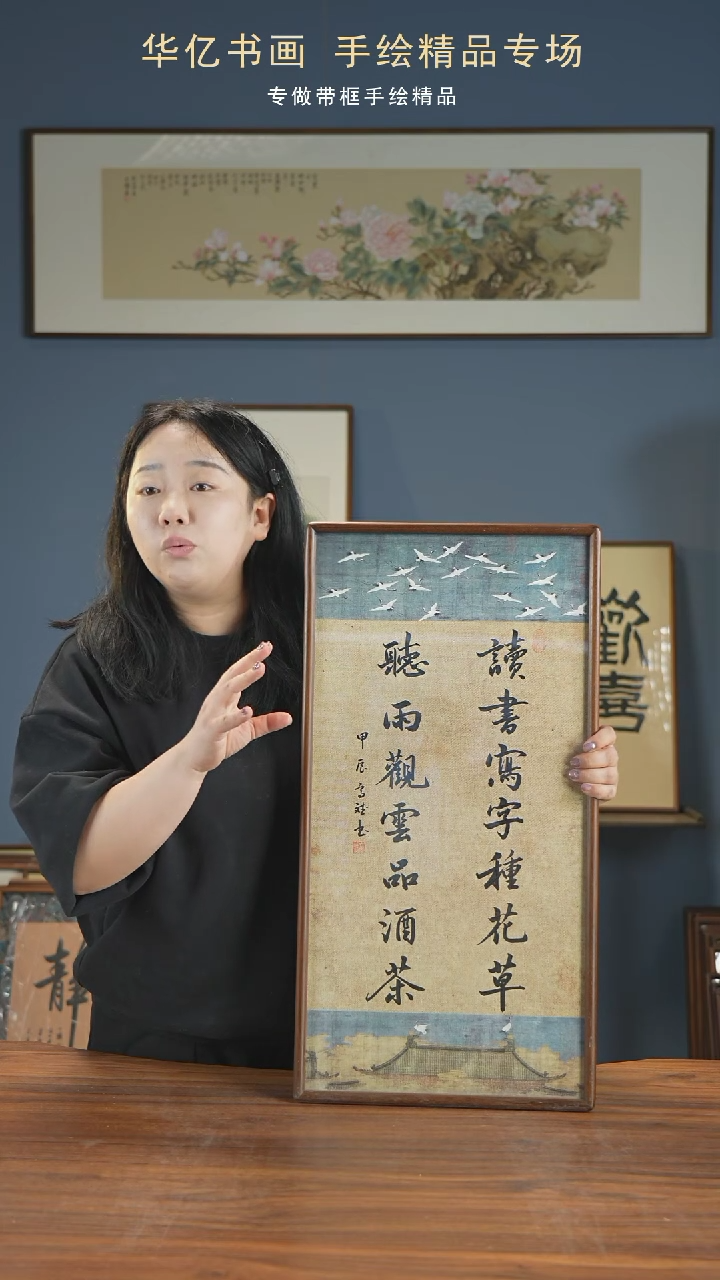 华亿书画 手绘精品专场
专做带框手绘精品
讀書寫字種花草
聽雨觀雲品酒茶
甲辰
歡喜
靜